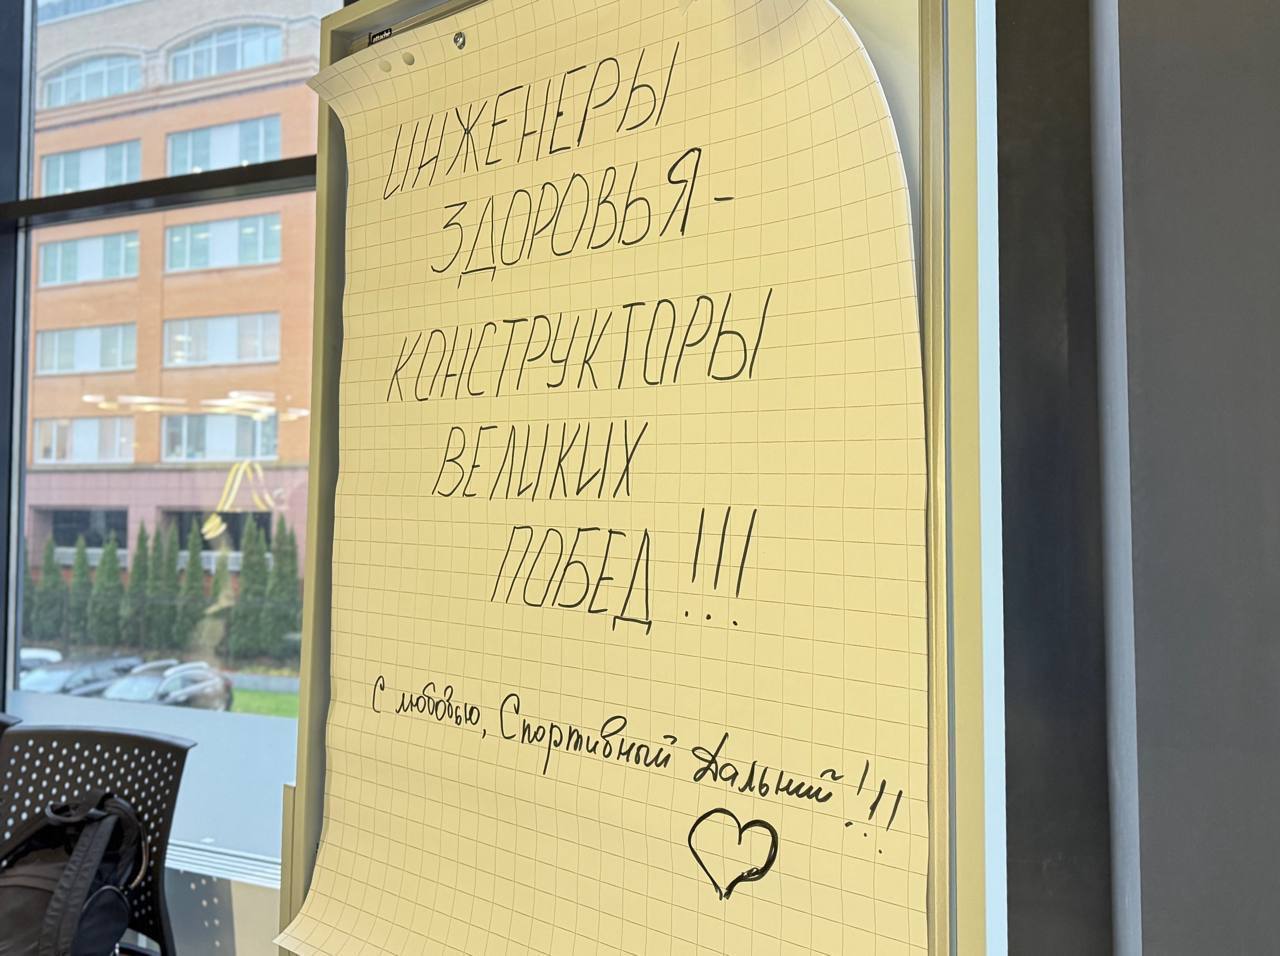 ИНЖЕНЕРЫ
ЗДОРОВЬЯ -
КОНСТРУКТОРЫ
ВЕЛИКИХ
ПОБЕД !!!
С любовью, Спортивный Дальний !!!